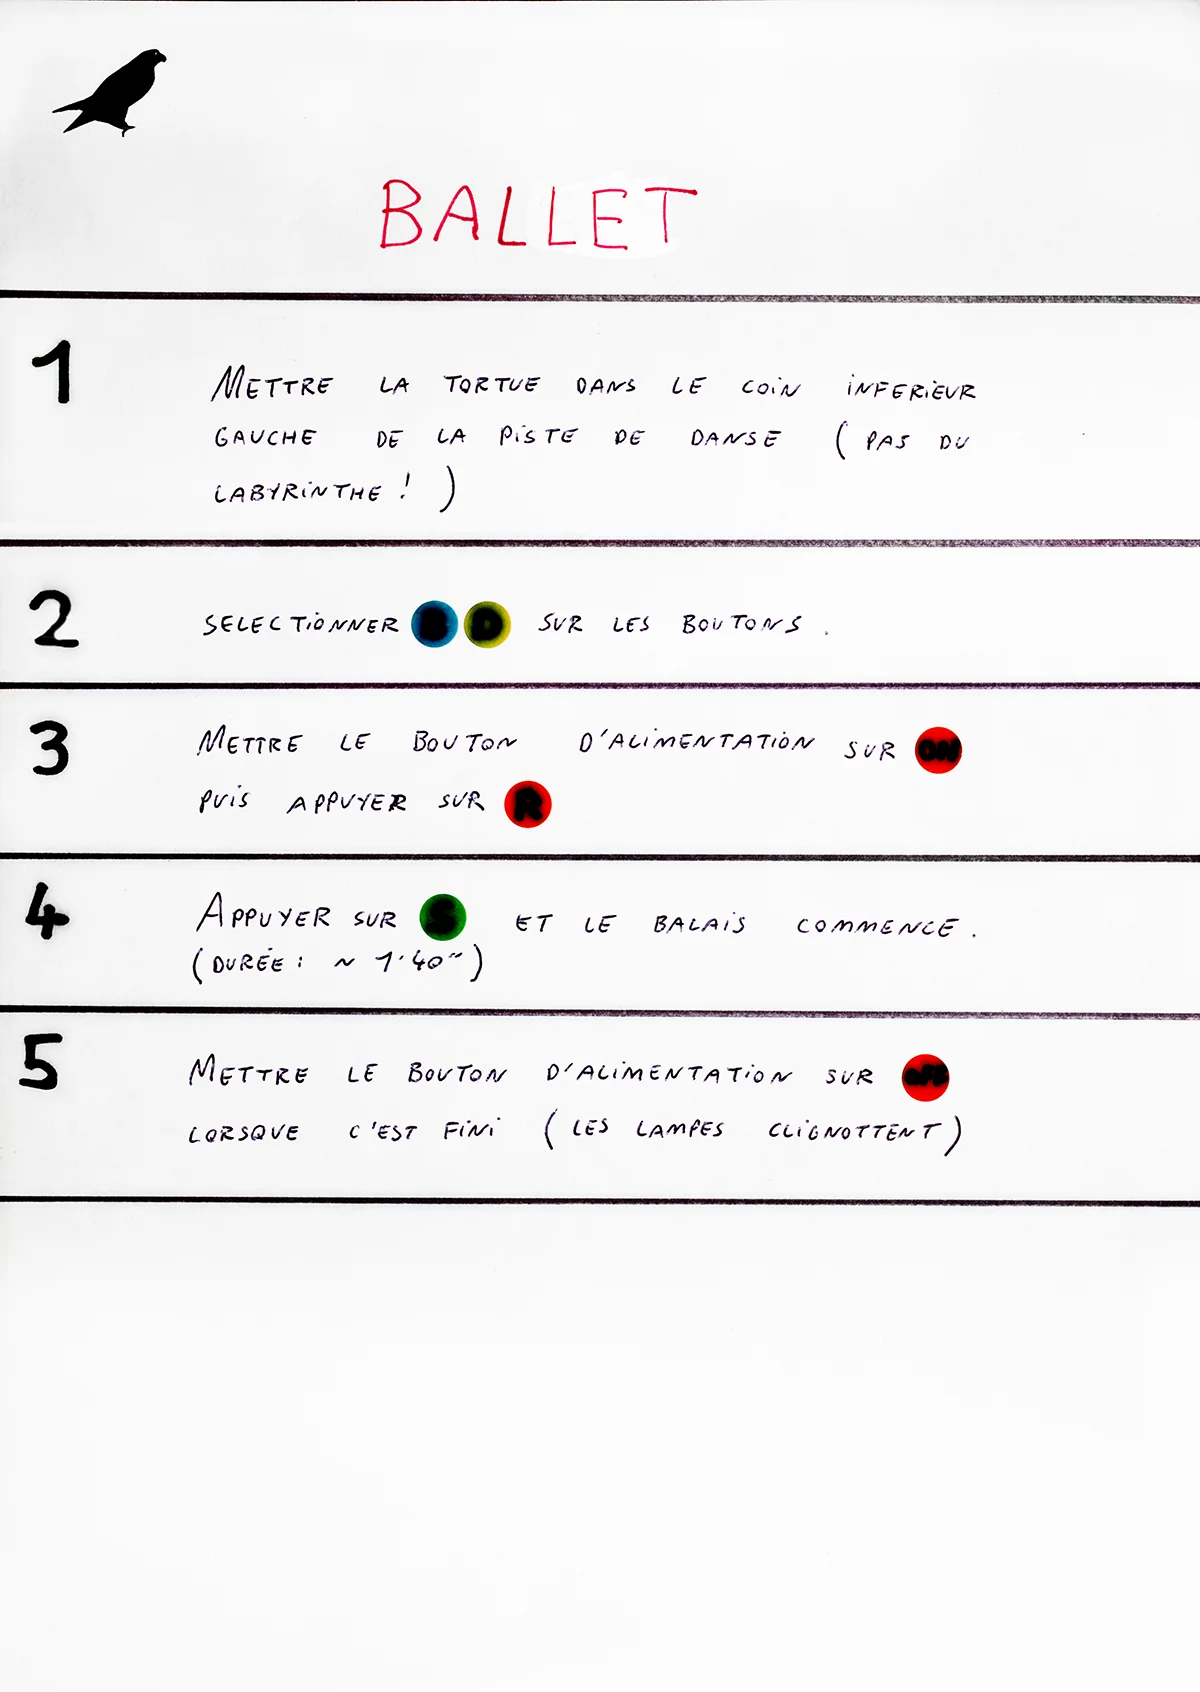 BALLET
1
METTRE LA TORTUE DANS LE COIN INFERIEUR
GAUCHE DE LA PISTE DE DANSE ( PAS DU
LABYRINTHE ! )
2
SELECTIONNER D SUR LES BOUTONS .
3
METTRE LE BOUTON D'ALIMENTATION SUR ON
PUIS APPUYER SUR R
4
APPUYER SUR S ET LE BALAIS COMMENCE .
(DURÉE : ~ 1'40")
5
METTRE LE BOUTON D'ALIMENTATION SUR OFF
LORSQUE C'EST FINI ( LES LAMPES CLIGNOTTENT )